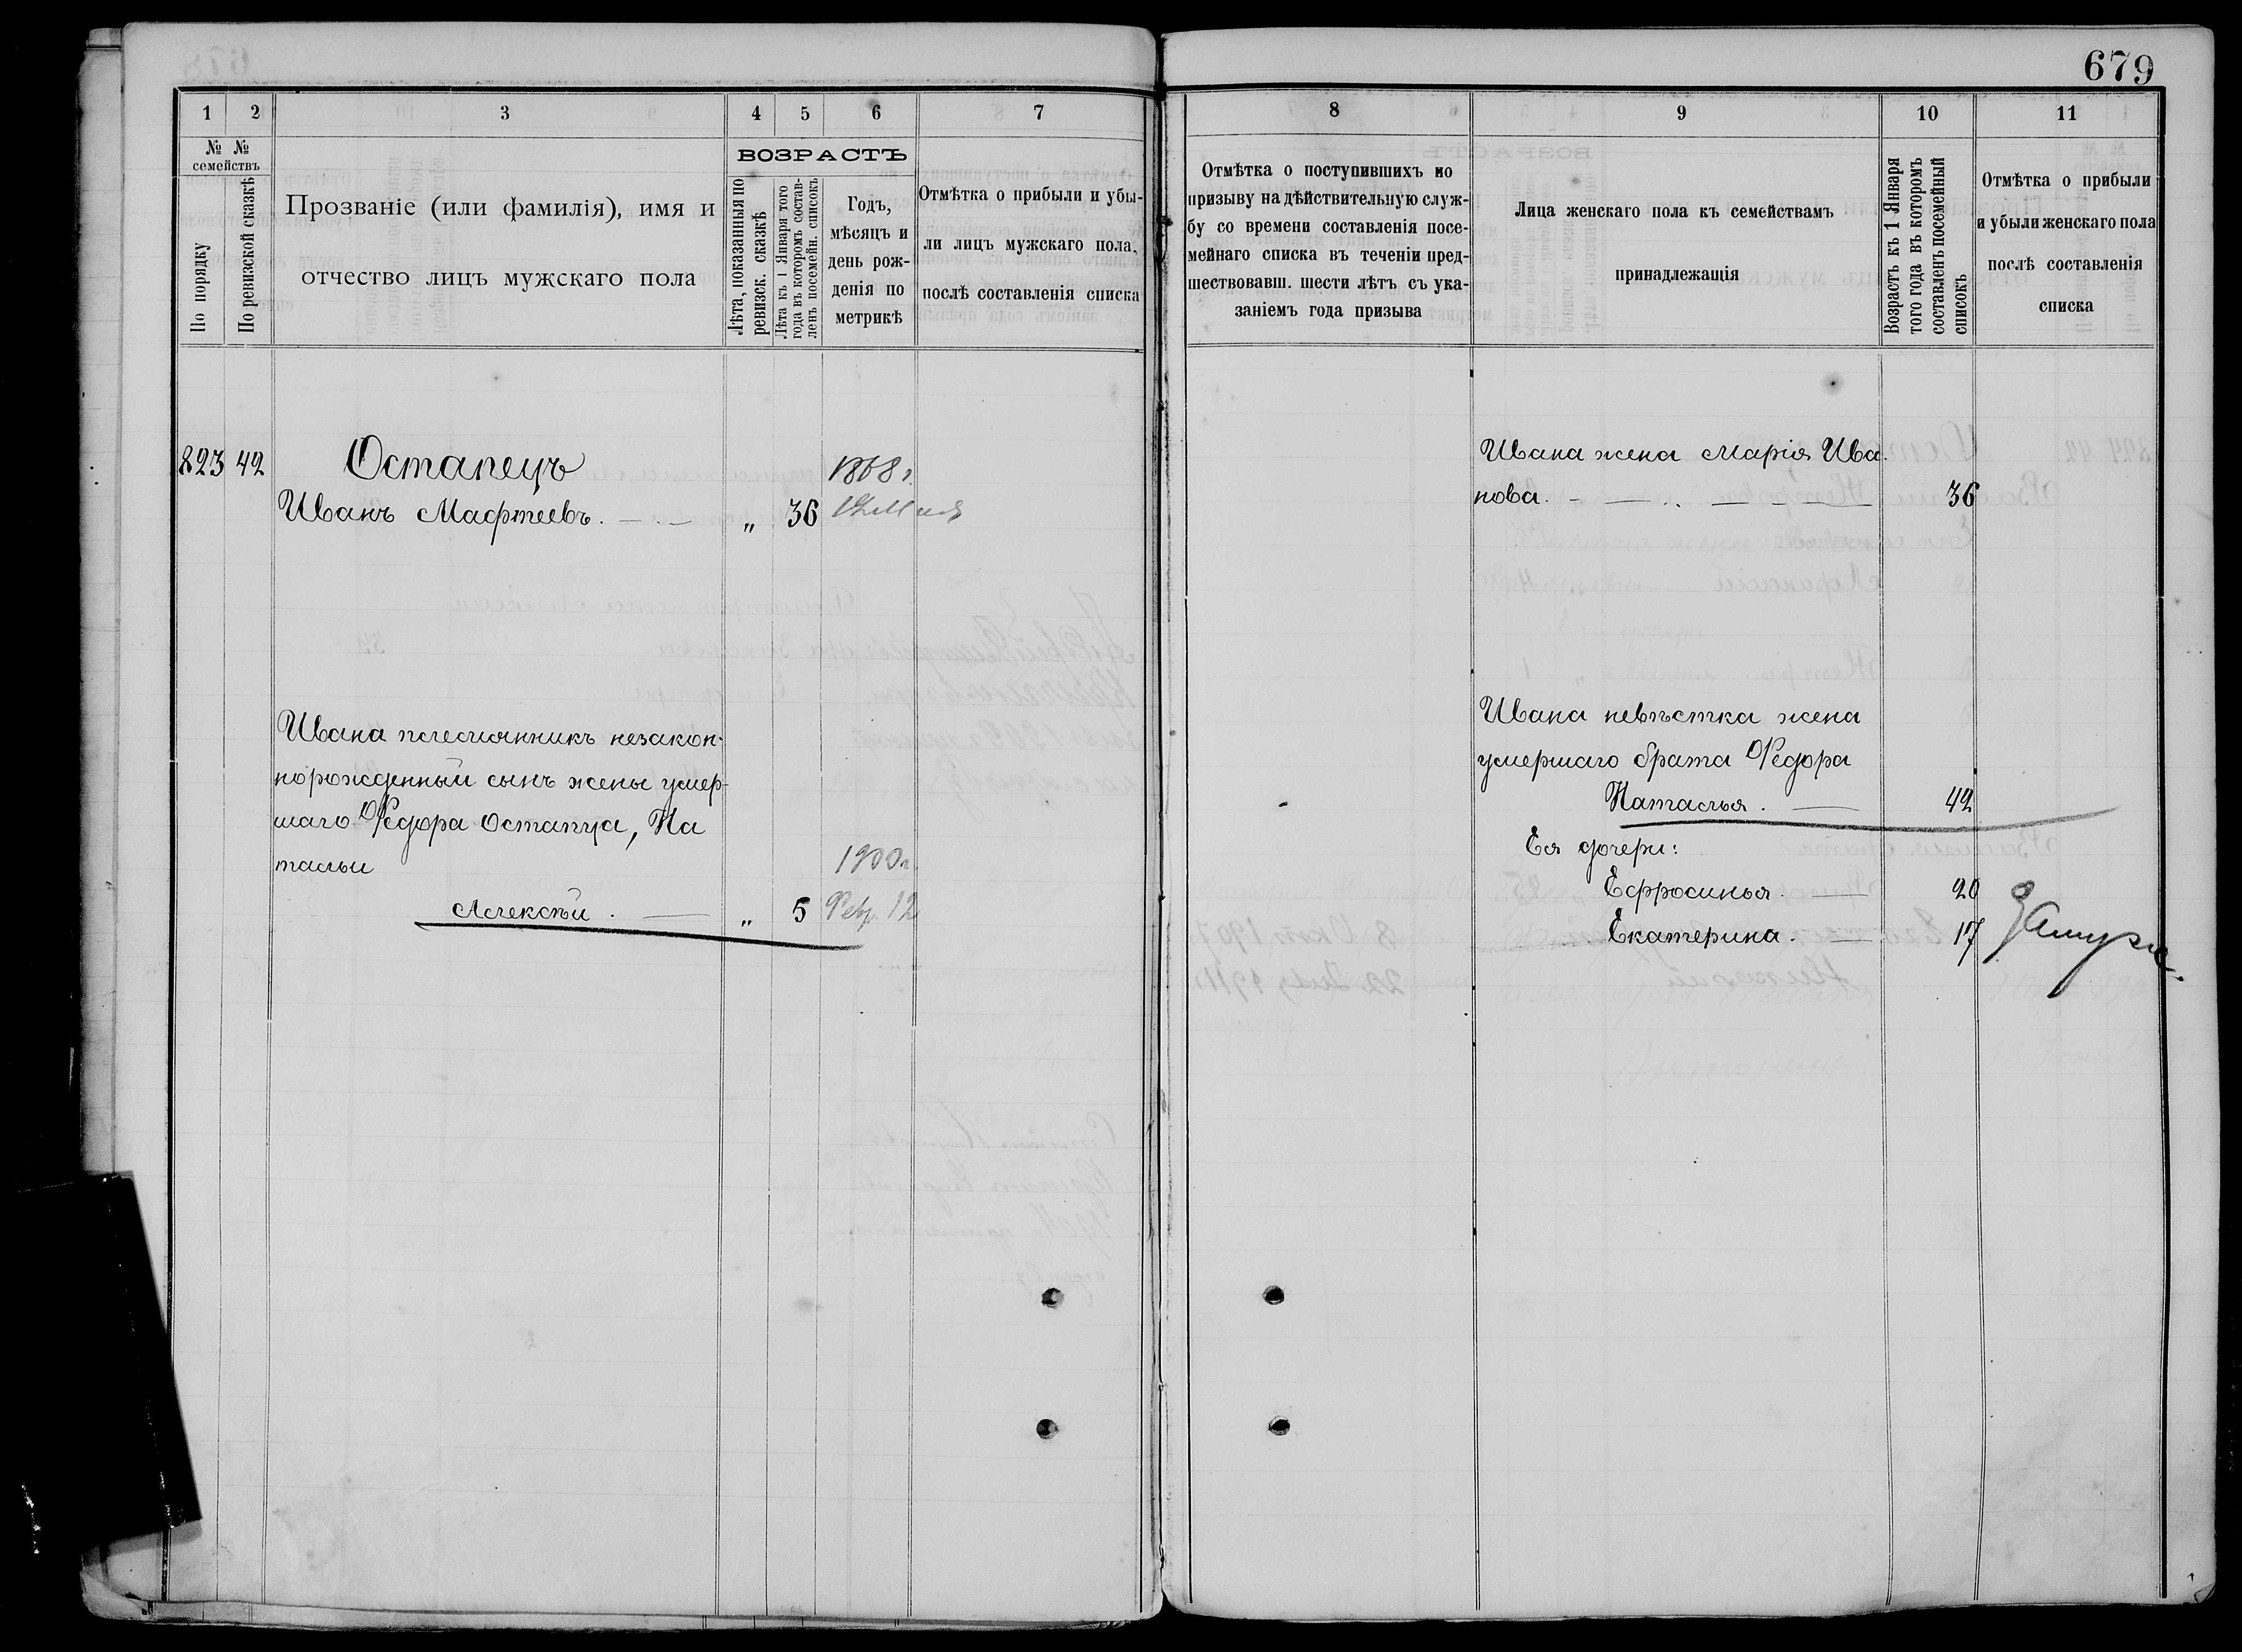 679
1 2 3 4 5 6 7
№ №
семействъ
По порядку
По ревизской сказкѣ
Прозваніе (или фамилія), имя и
отчество лицъ мужскаго пола
ВОЗРАСТЪ
Лѣта, показанныя по
ревизск. сказкѣ
Лѣта къ 1 Января того
года въ которомъ состав-
ленъ посемейн. списокъ
Годъ,
мѣсяцъ и
день рож-
денія по
метрикѣ
Отмѣтка о прибыли и убы-
ли лицъ мужскаго пола,
послѣ составленія списка
823 42 Остапецъ 1868 г.
Иванъ Мафтеевъ. „ 36
Ивана племянникъ незакон-
норожденный сынъ жены умер-
шаго Ѳедора Остапца, На
тальи 1900 г.
Алексѣй. „ 5 Февр. 12
8 9 10 11
Отмѣтка о поступившихъ по
призыву на дѣйствительную служ-
бу со времени составленія посе-
мейнаго списка въ теченіи пред-
шествовавш. шести лѣтъ съ ука-
заніемъ года призыва
Лица женскаго пола къ семействамъ
принадлежащія
Возрастъ къ 1 Января
того года въ которомъ
составленъ посемейный
списокъ
Отмѣтка о прибыли
и убыли женскаго пола
послѣ составленія
списка
Ивана жена Марія Ива-
нова. 36
Ивана невѣстка жена
умершаго брата Ѳедора
Наталья. 42
Ея дочери:
Ефросинья. 20
Екатерина. 17 Замуже.